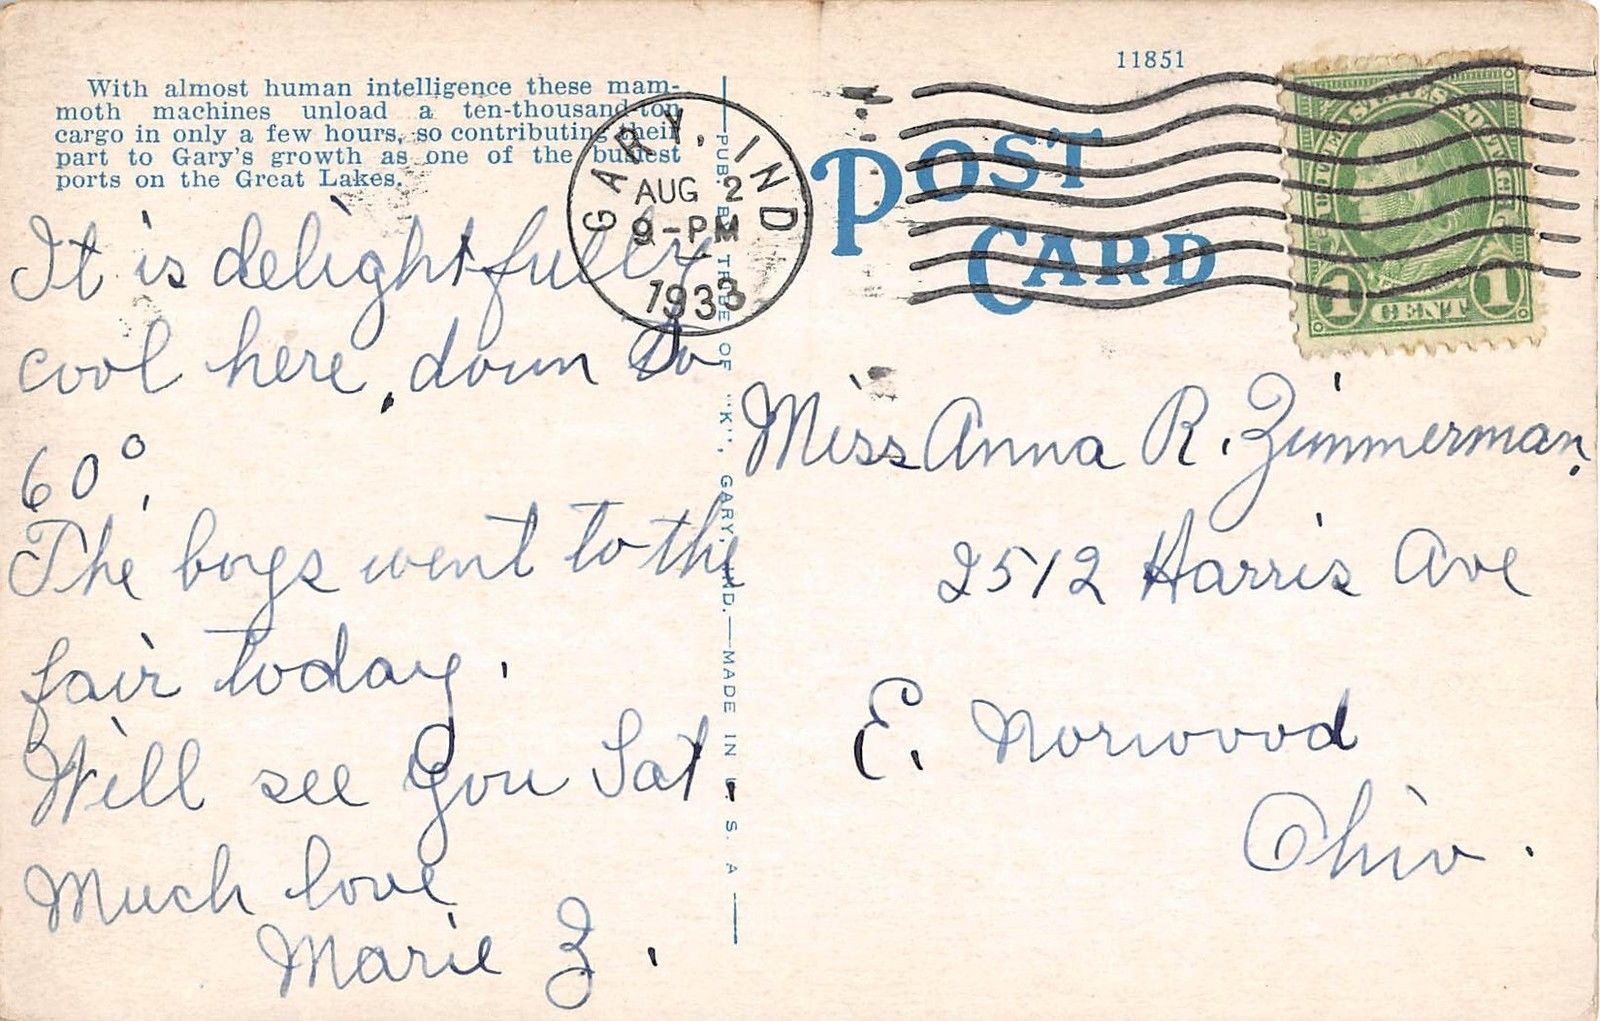 11851
With almost human intelligence these mam-
moth machines unload a ten-thousand ton
cargo in only a few hours, so contributing their
part to Gary's growth as one of the busiest
ports on the Great Lakes.
GARY, IND
AUG 2
9-PM
1933
POST
CARD
UNITED STATES POSTAGE
1 CENT 1
PUB. BY TRIBE OF "K", GARY, IND.—MADE IN U. S. A
It is delightfully
cool here, down to
60°.
The boys went to the
fair today.
Will see you Sat.
Much love
Marie Z.
Miss Anna R. Zimmerman,
2512 Harris Ave
E. Norwood
Ohio.